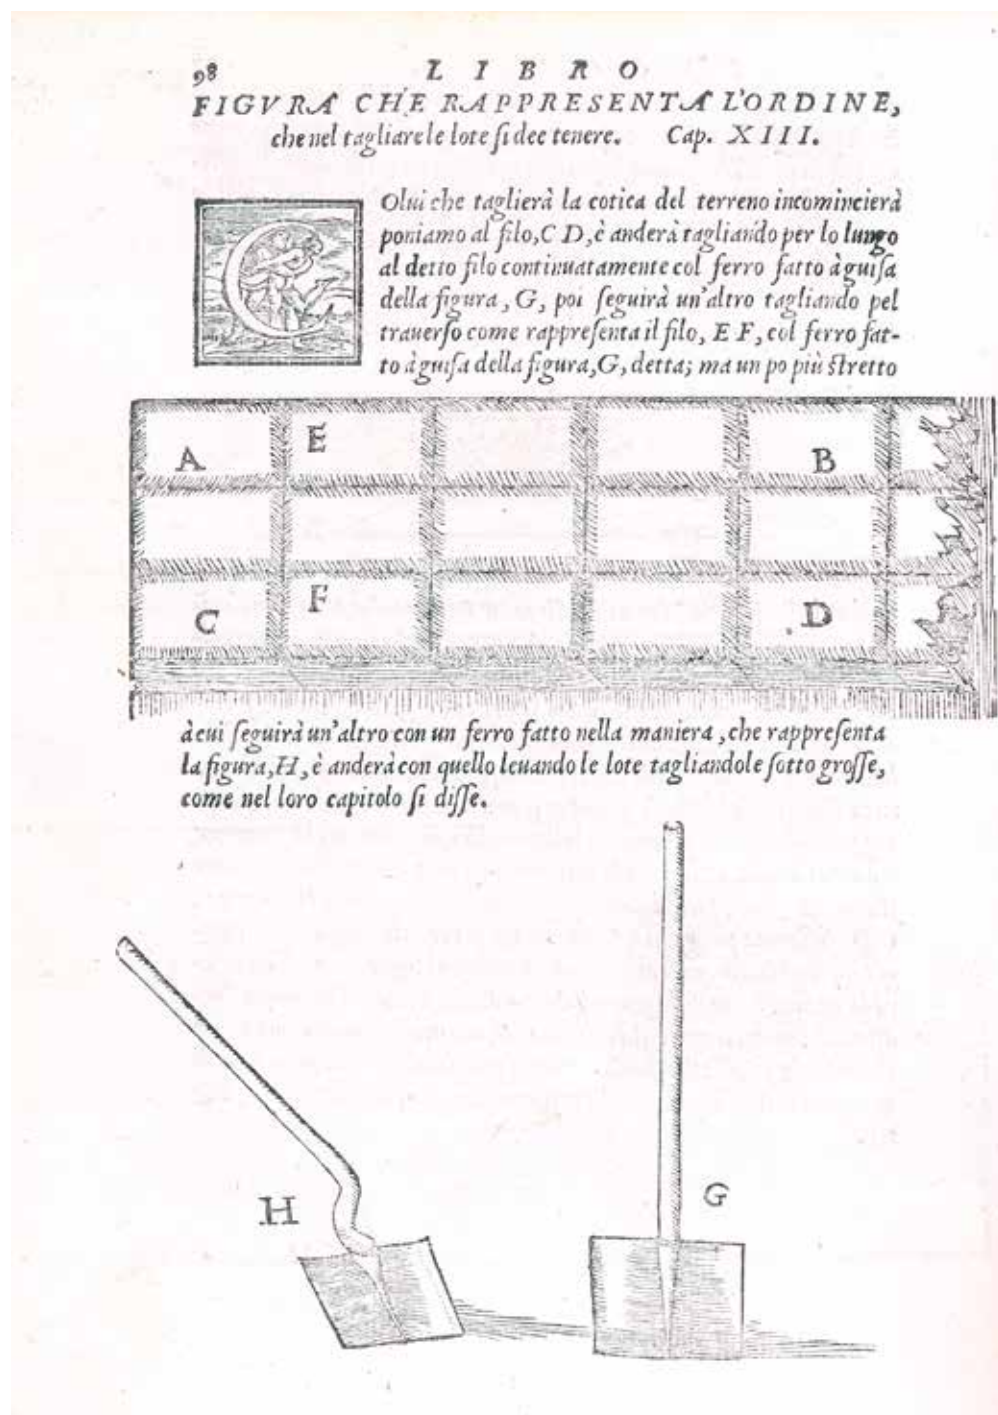 98
LIBRO
FIGVRA CHE RAPPRESENTA L'ORDINE,
che nel tagliare le lote ſi dee tenere. Cap. XIII.
COlui che taglierà la cotica del terreno incomincierà
poniamo al filo, C D, è anderà tagliando per lo lungo
al detto filo continuatamente col ferro fatto à guiſa
della figura, G, poi ſeguirà un'altro tagliando pel
trauerſo come rappreſenta il filo, E F, col ferro fat-
to à guiſa della figura, G, detta; ma un po più ſtretto
A E B
C F D
à cui ſeguirà un'altro con un ferro fatto nella maniera, che rappreſenta
la figura, H, è anderà con quello leuando le lote tagliandole ſotto groſſe,
come nel loro capitolo ſi diſſe.
H G